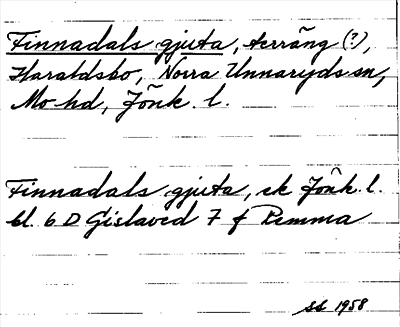 Finnadals gjuta, terräng (?),
Haraldsbo, Norra Unnaryds sn,
Mo hd, Jönk. l.
Finnadals gjuta, ek Jönk. l.
bl. 6 D Gislaved 7 f Remma
ss 1958